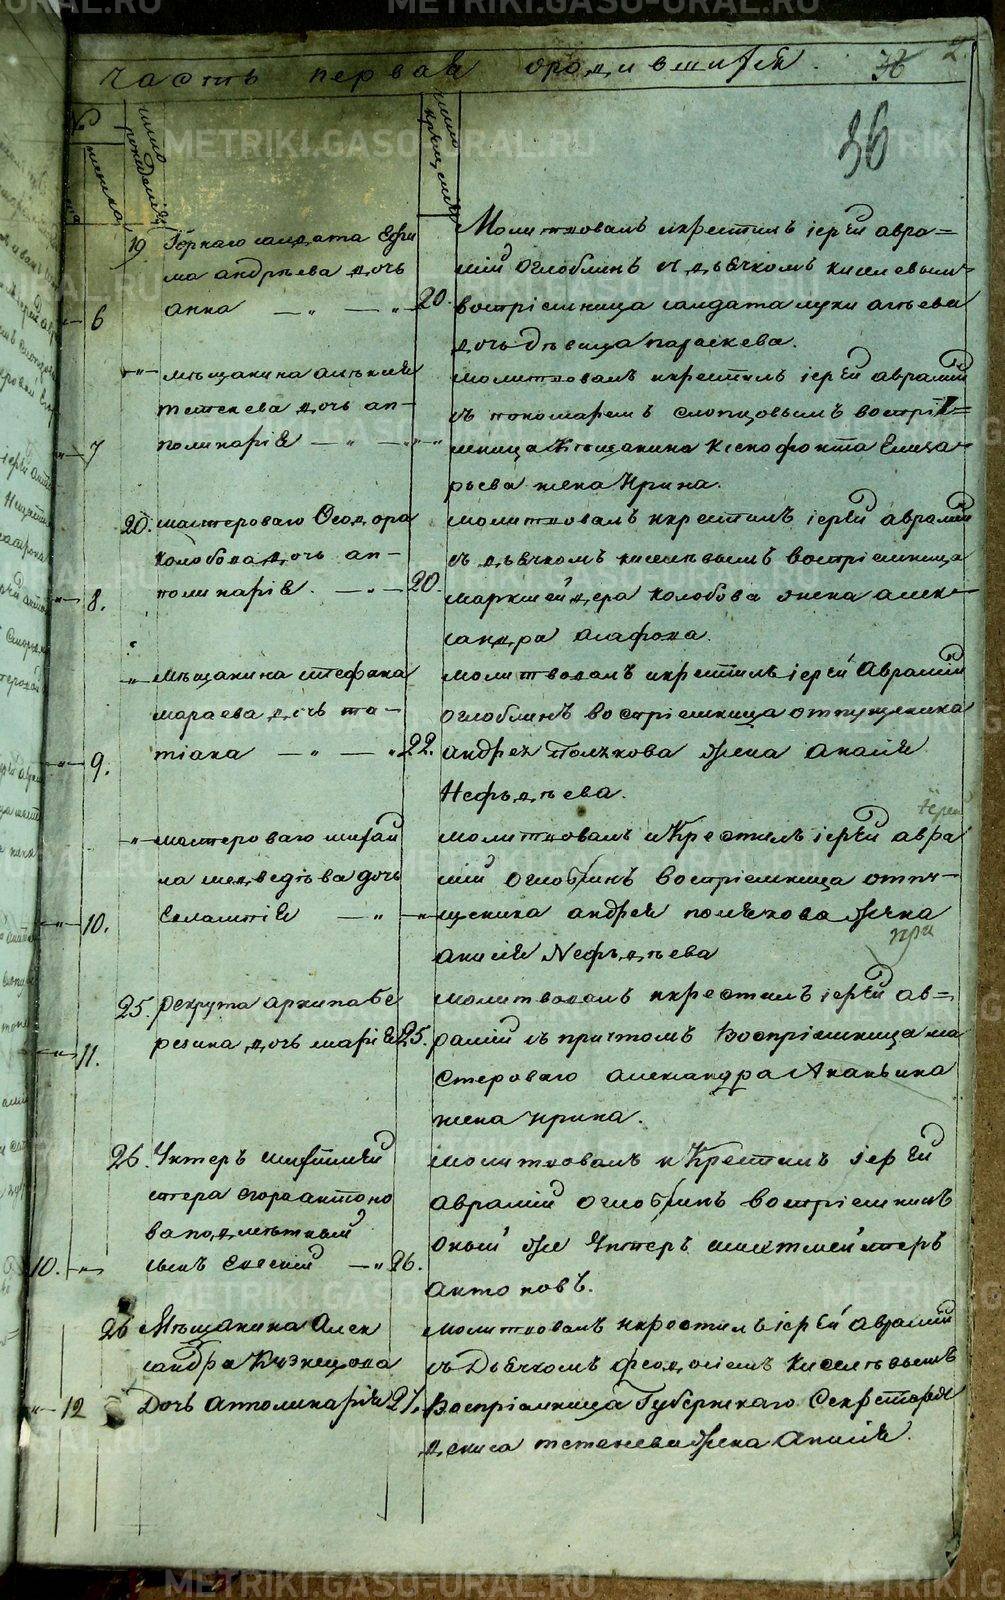 METRIKI.GASO-URAL.RU
часть первая ородившихся.
36
2
36
№
женска
число рожденiя
число крещенiя
19. Горнаго салдата Ефи
ма андрѣева дочь
6 анна 20.
Молитвовалъ икрестилъ iерей авра=
мiй Оглоблинъ съ дьячкомъ киселевымъ
воспрiемница салдата луки
дочь дѣвица параскева.
мѣщанина алексѣя
тетенева дочь ап-
7 полинарiя
молитвовалъ икрестилъ iерей аврамiй
съ пономаремъ слопцовымъ воспрiе=
мница мѣщанина Ксенофонта Елиза-
рьева жена Ирина.
20. мастероваго Ѳеодора
колобова дочь ап-
8. полинарiя. 20.
молитвовалъ икрестилъ iерей аврамiй
съ дьячкомъ киселевымъ воспрiемница
маркшейдера колобова жена алек-
сандра агафова.
мѣщанина стефана
мараева дочь та-
9. тiана 22.
молитвовалъ икрестилъ iерей Аврамiй
оглоблинъ воспрiемница отпущеника
андрея Полѣкова жена акилiя
Нефѣдѣева.
мастероваго михай
ла медведѣва дочь
10. Евлампiя
молитвовалъ и Крестилъ iерей авра
мiй оглоблинъ воспрiемница отпу-
щеника андрея полѣкова жена
акилiя Нефѣдѣева
при
25. рекрута архипа бе
резина дочь марiя 25.
11.
молитвовалъ икрестилъ iерей ав=
рамiй съ причтомъ Воспрiемница ма
стероваго александра Ананьина
жена ирина.
26. Унтеръ шихтмей
стера егора антоно
ва подметный
10. сынъ Евсевiй 26.
молитвовалъ и Крестилъ iерей
аврамiй оглоблинъ воспрiемникъ
оный же Унтеръ шихтмейстеръ
антоновъ.
26 Мѣщанина Алек
сандра Кузнецова
12 Дочь апполинарiя 27.
молитвовалъ икрестилъ iерей аврамiй
съ Дьячкомъ феодосiемъ киселевымъ
Воспрiемница Губернскаго Секретаря
дениса тетенева жена Акилiя.